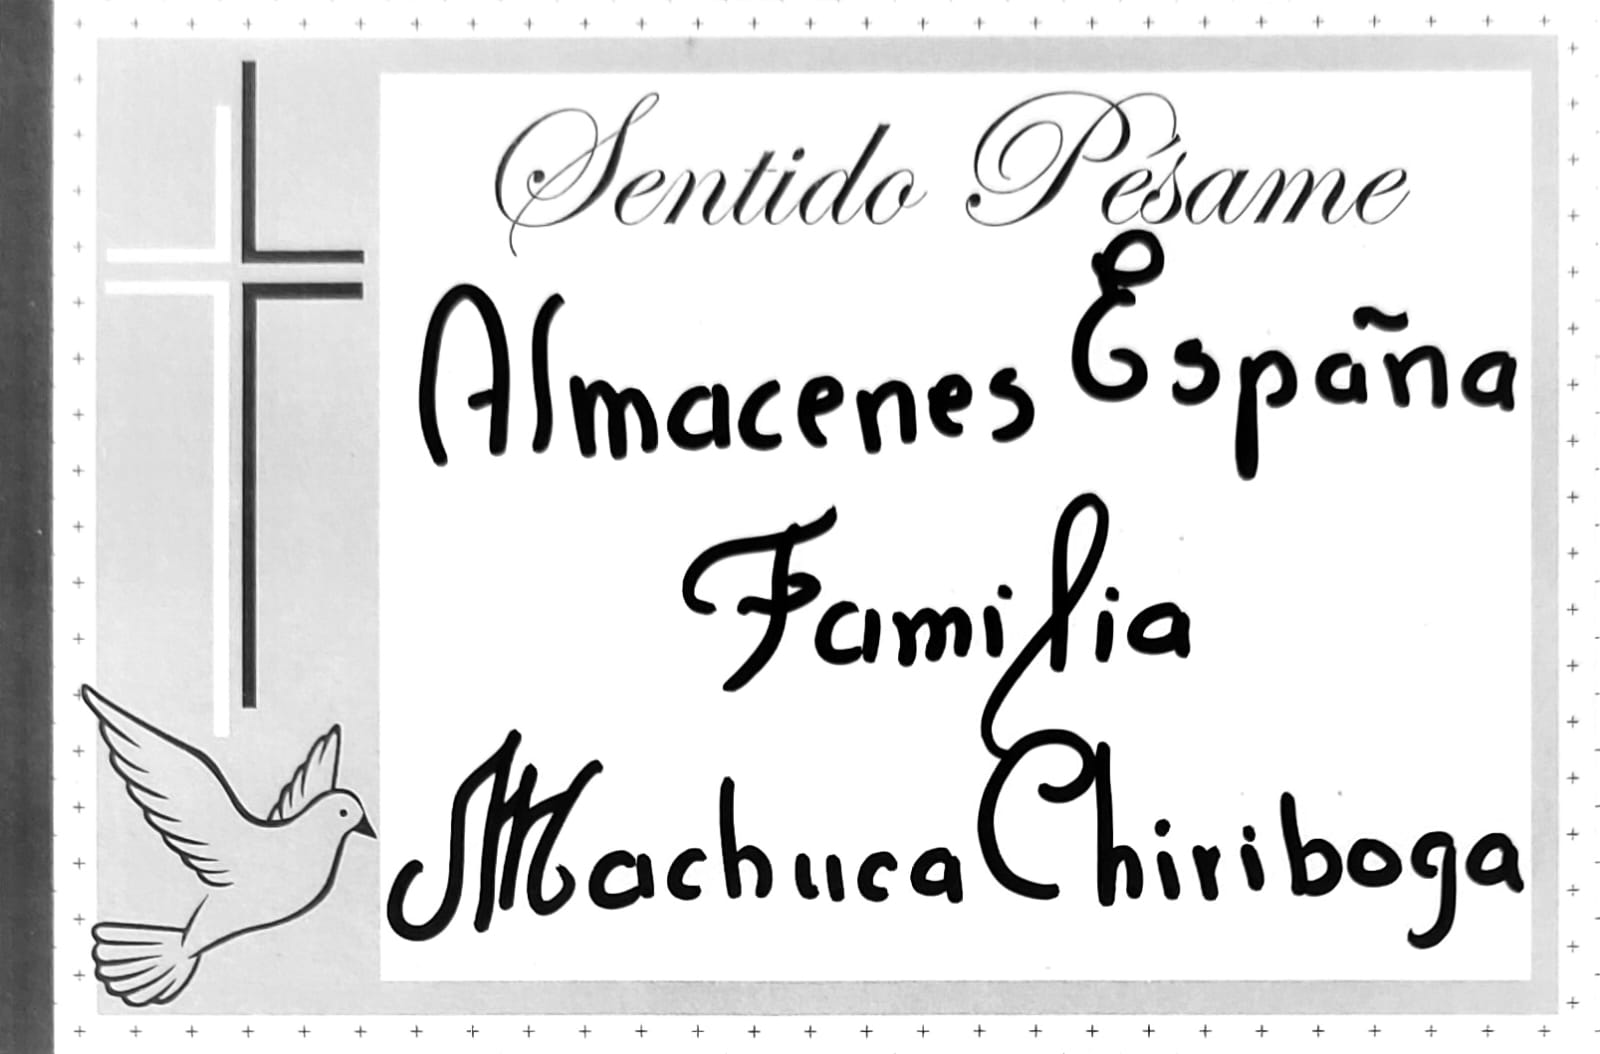 Sentido Pésame
Almacenes España
Familia
Machuca Chiriboga